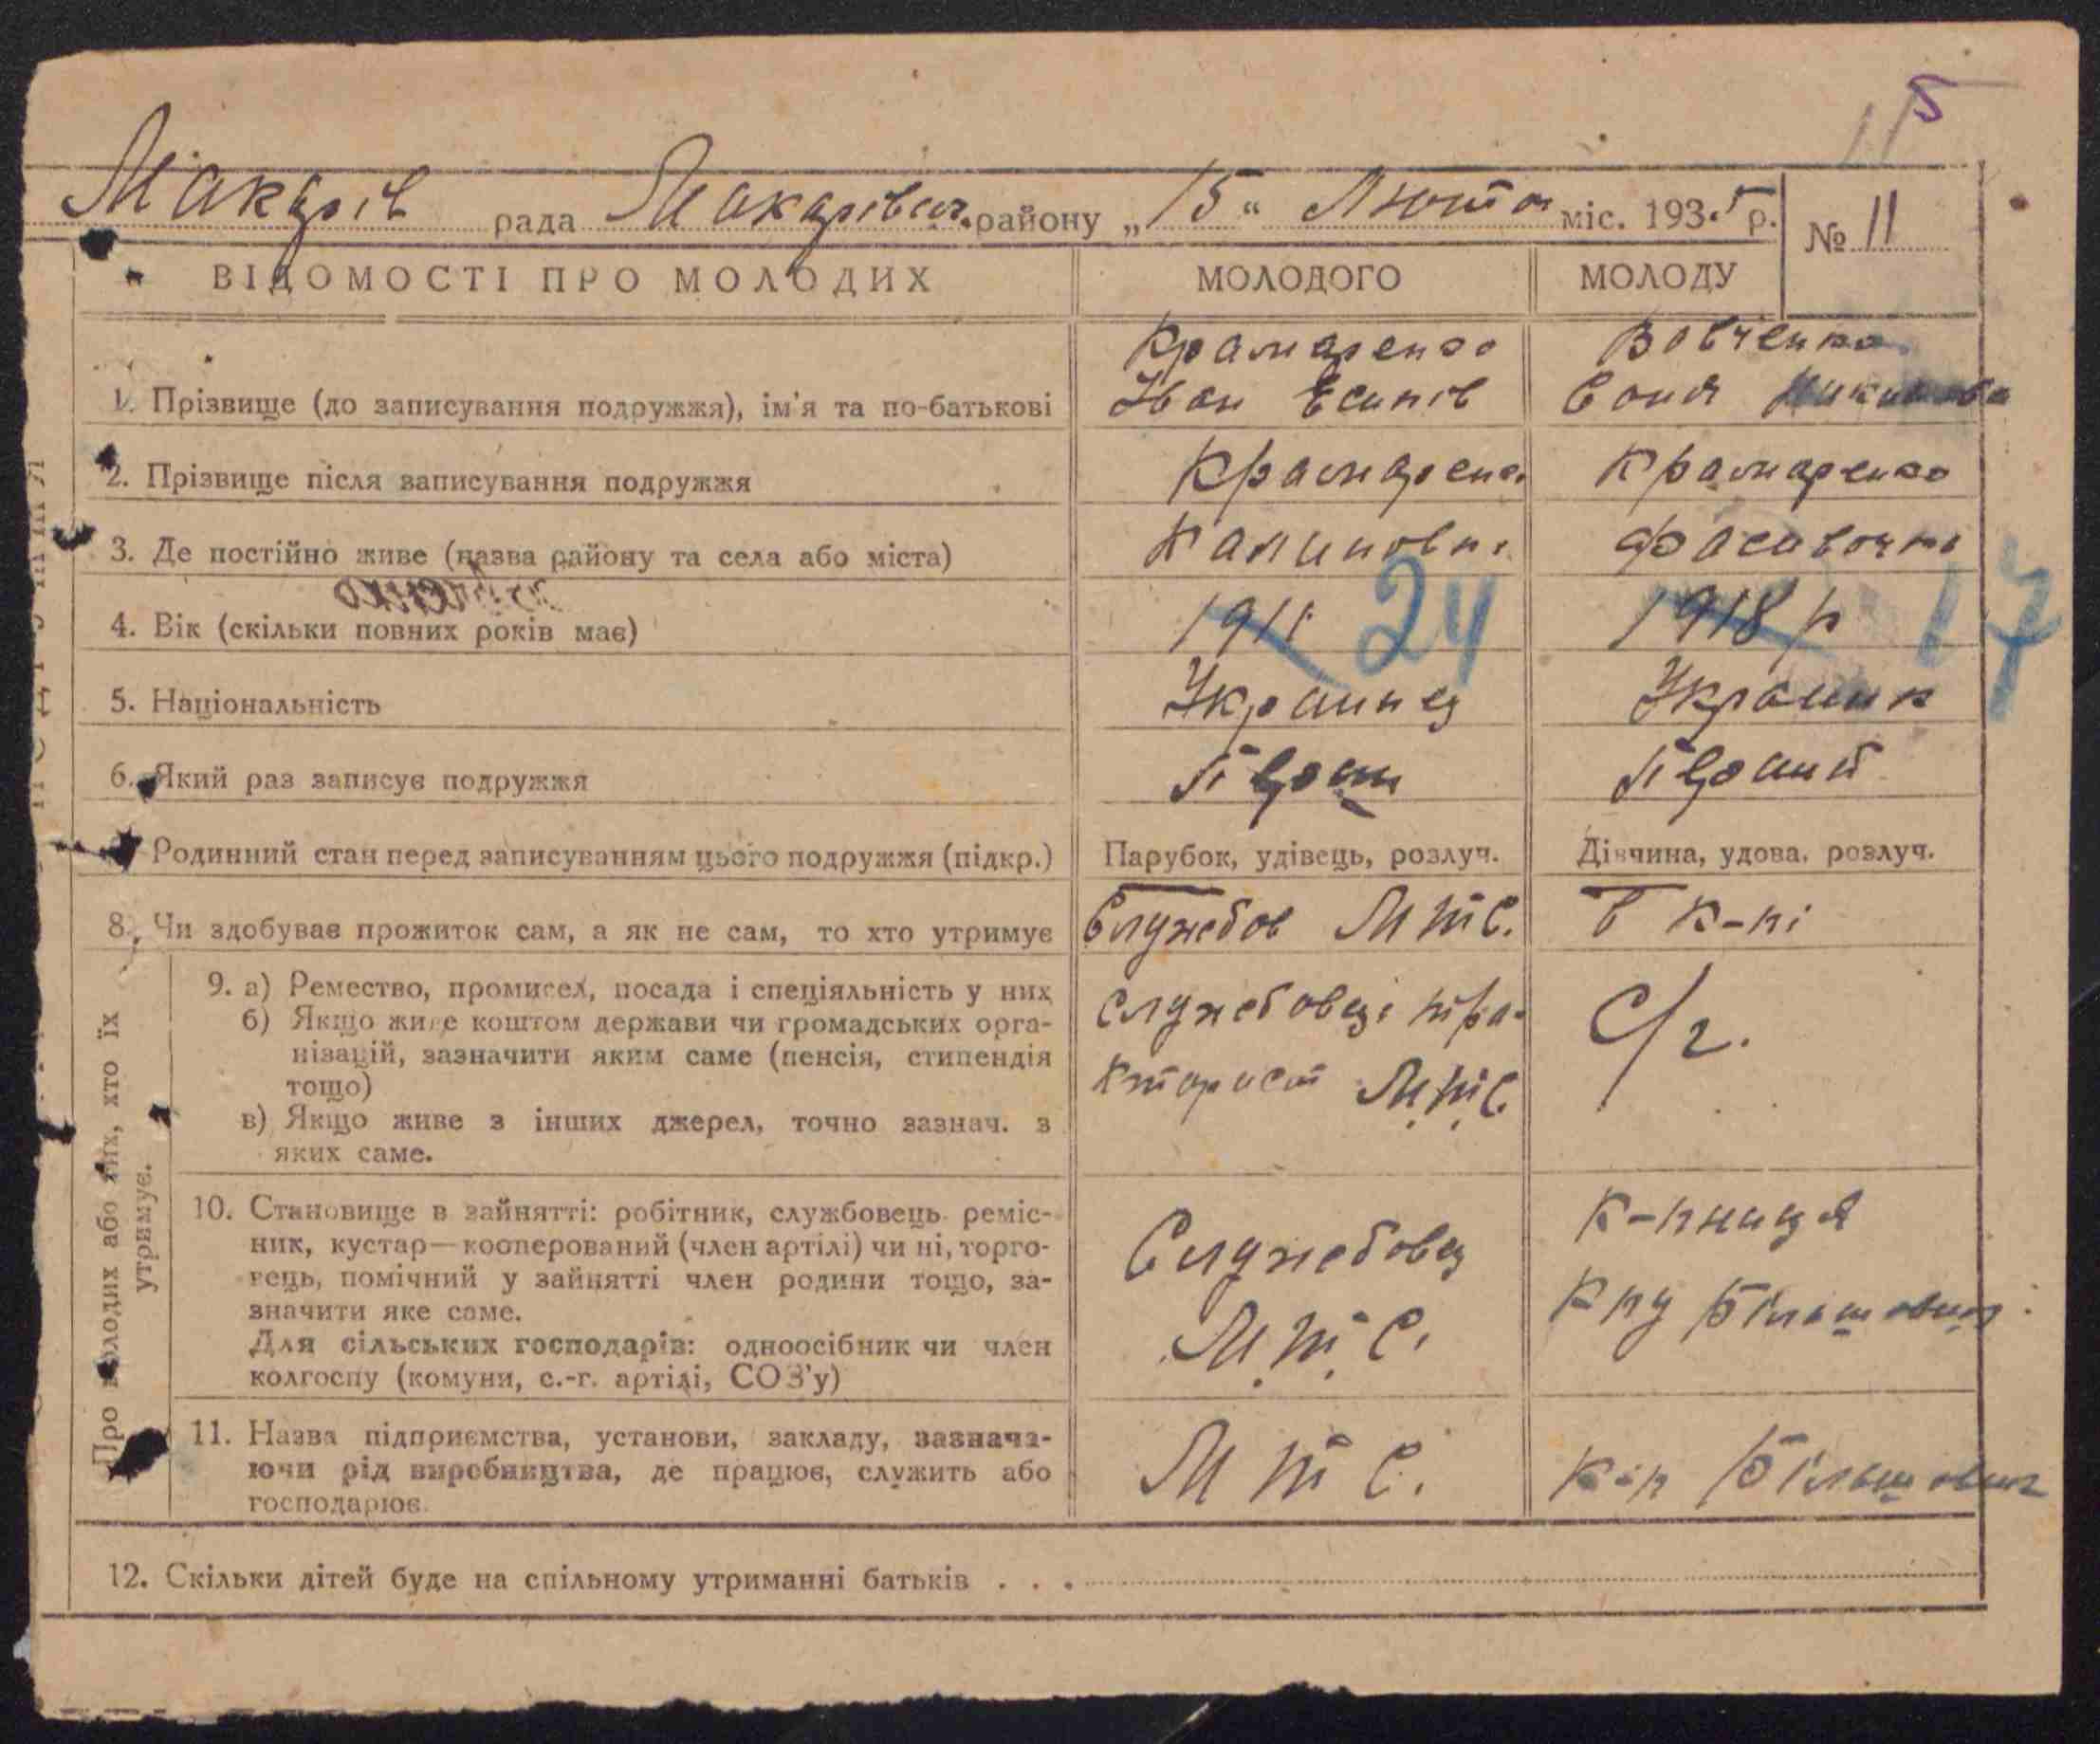 115
Макарів рада Макарівськ. району „15“ Люто міс. 1935 р. № 11
ВІДОМОСТІ ПРО МОЛОДИХ МОЛОДОГО МОЛОДУ
Крамаренко Вовченко
1. Прізвище (до записування подружжя), ім'я та по-батькові Іван Есипів Соня
2. Прізвище після записування подружжя Крамаренко Крамаренко
3. Де постійно живе (назва району та села або міста) Калиновка Фасивочка
4. Вік (скільки повних років має) 1911 24 1918 р 17
5. Національність Украинец Украинк
6. Який раз записує подружжя Перший
Родинний стан перед записуванням цього подружжя (підкр.) Парубок, удівець, розлуч. Дівчина, удова, розлуч.
8. Чи здобуває прожиток сам, а як не сам, то хто утримує Службов МТС. в к-пі
Про молодих або тих, хто їх
утримує.
9. а) Ремество, промисел, посада і спеціяльність у них службовець тра-
б) Якщо живе коштом держави чи громадських орга-
нізацій, зазначити яким саме (пенсія, стипендія С/г.
тощо) кторист М.Т.С
в) Якщо живе з інших джерел, точно зазнач. з
яких саме.
10. Становище в зайнятті: робітник, службовець реміс- к-пниця
ник, кустар—кооперований (член артілі) чи ні, торго- Службовец
вець, помічний у зайнятті член родини тощо, за- кпу Більшовик
значити яке саме.
Для сільських господарів: одноосібник чи член М.Т.С.
колгоспу (комуни, с.-г. артілі, СОЗ'у)
11. Назва підприємства, установи, закладу, зазнача- МТС. к-п Більшовик
ючи рід виробництва, де працює, служить або
господарює.
12. Скільки дітей буде на спільному утриманні батьків . . .